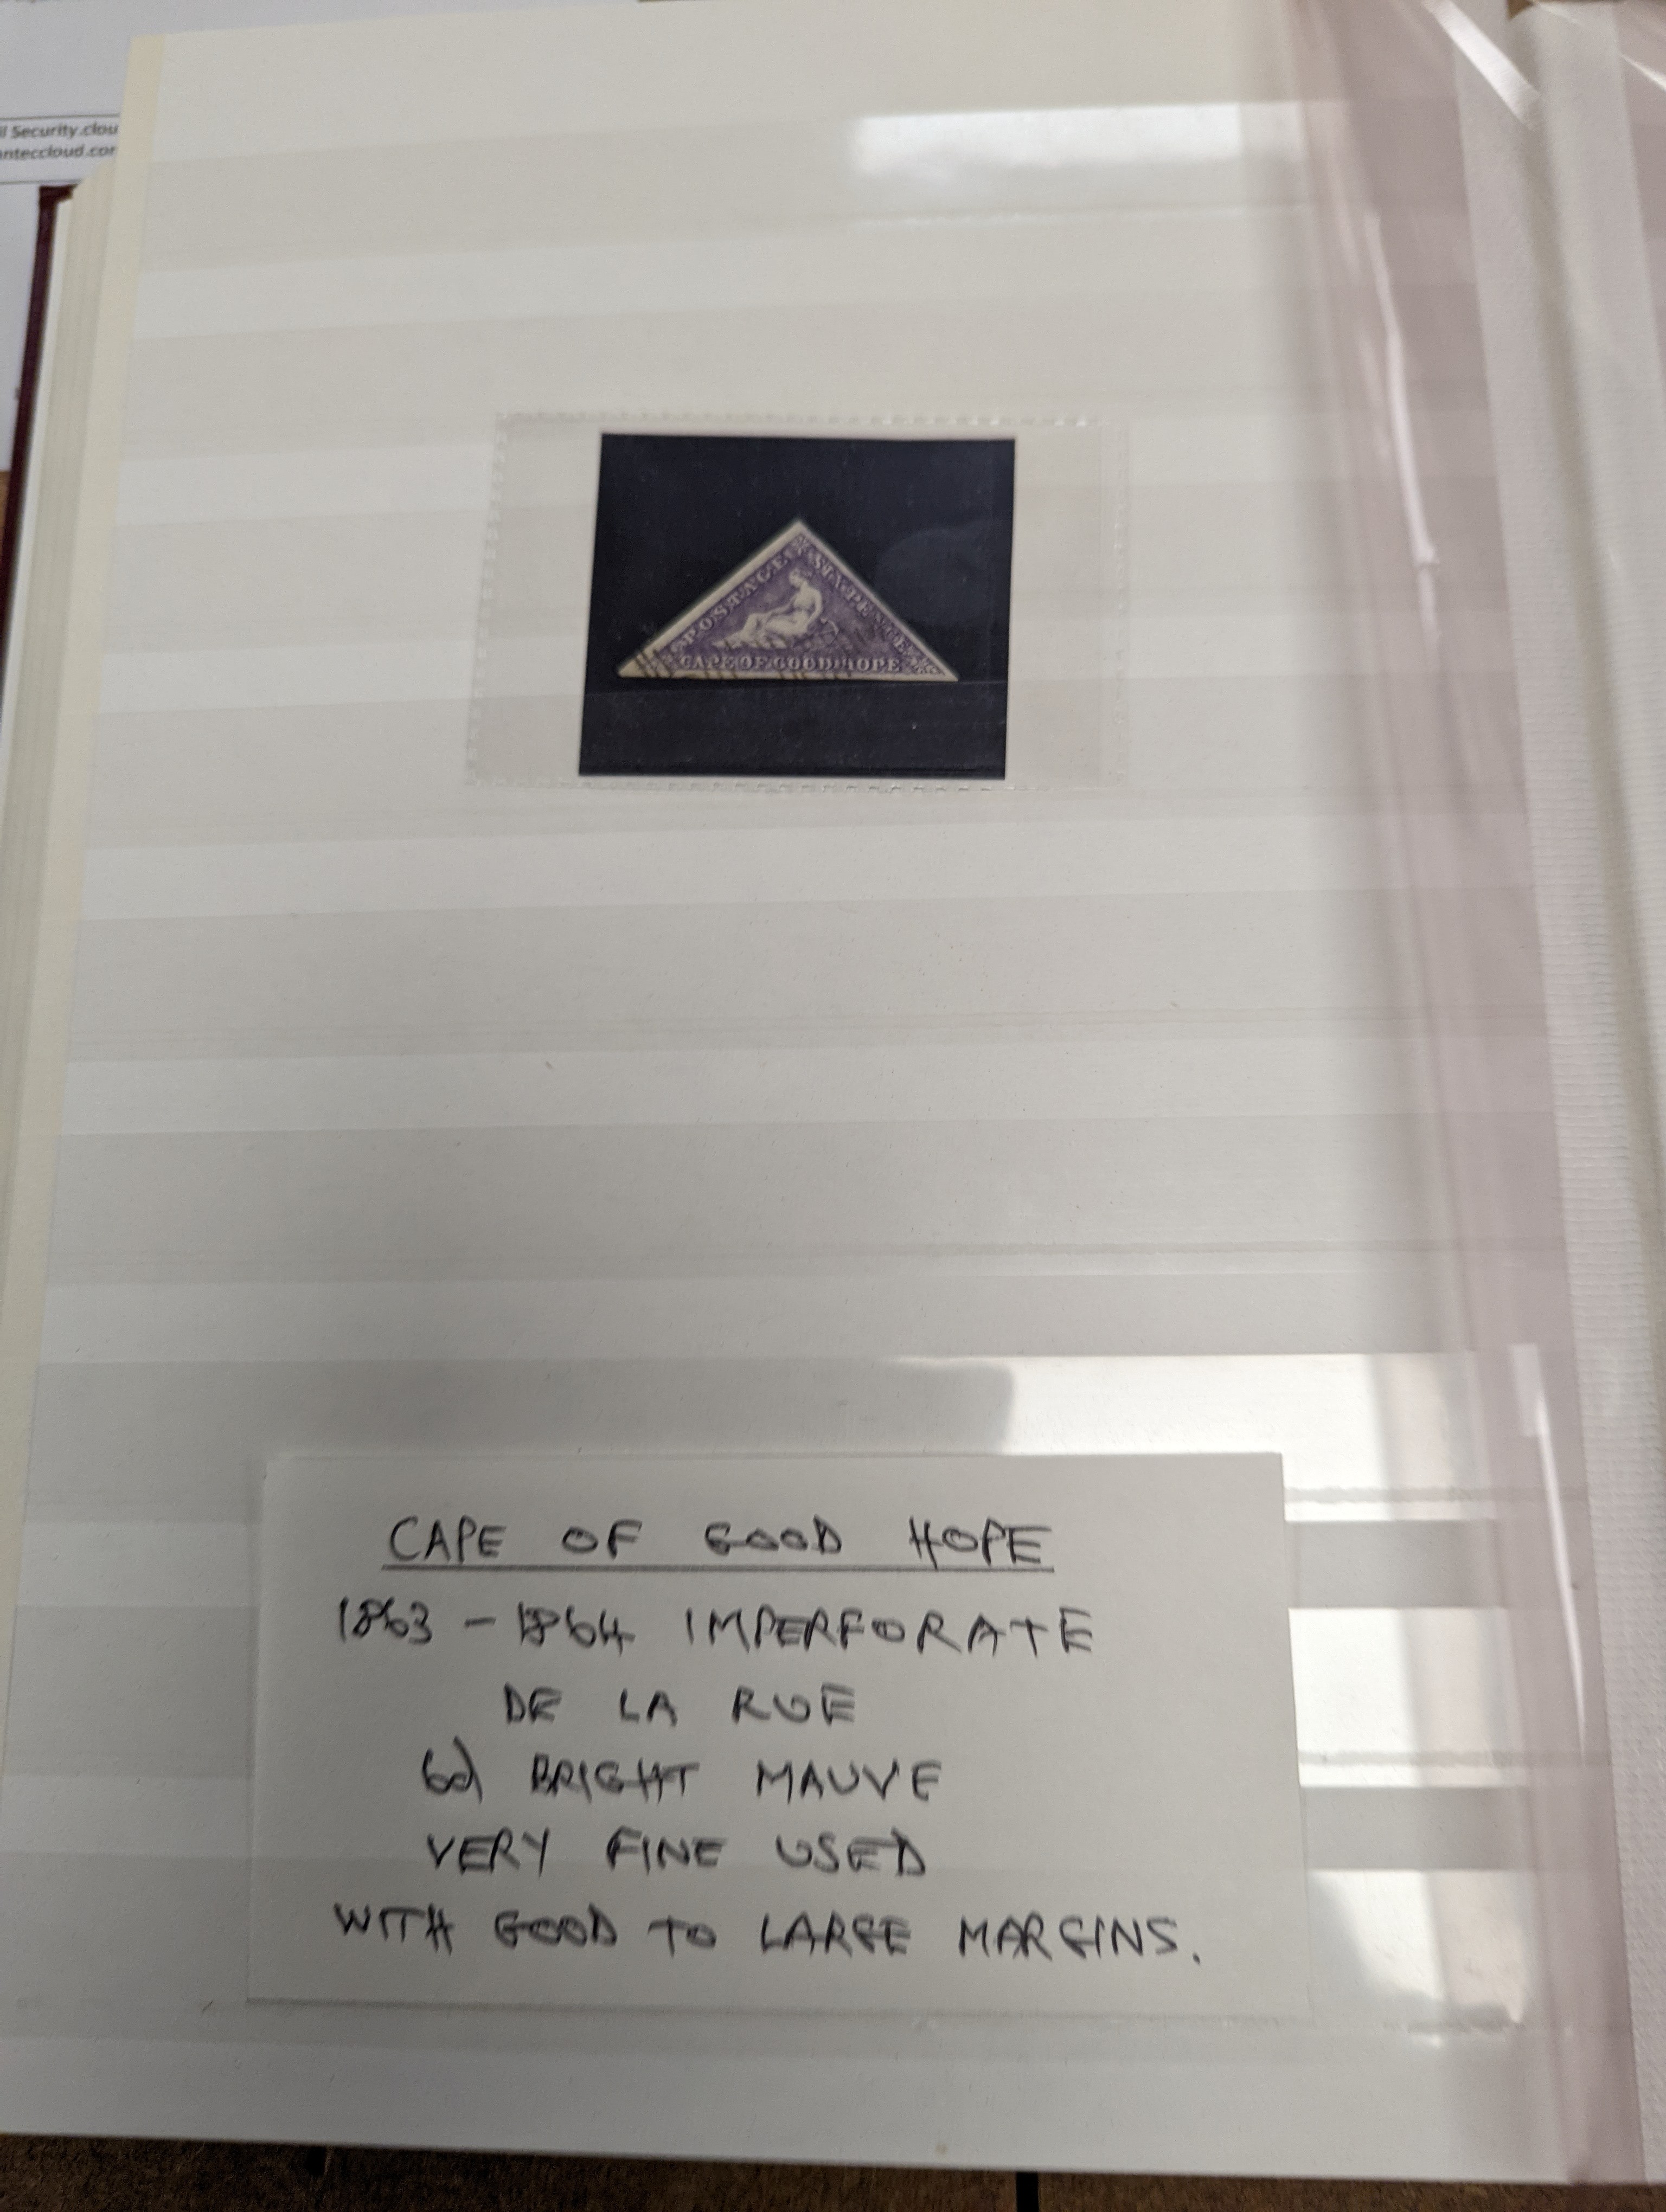 il Security.clou
anteccloud.cor
POSTAGE SIX PENCE
CAPE OF GOOD HOPE
CAPE OF GOOD HOPE
1863 - 1864 IMPERFORATE
DE LA RUE
6d BRIGHT MAUVE
VERY FINE USED
WITH GOOD TO LARGE MARGINS.